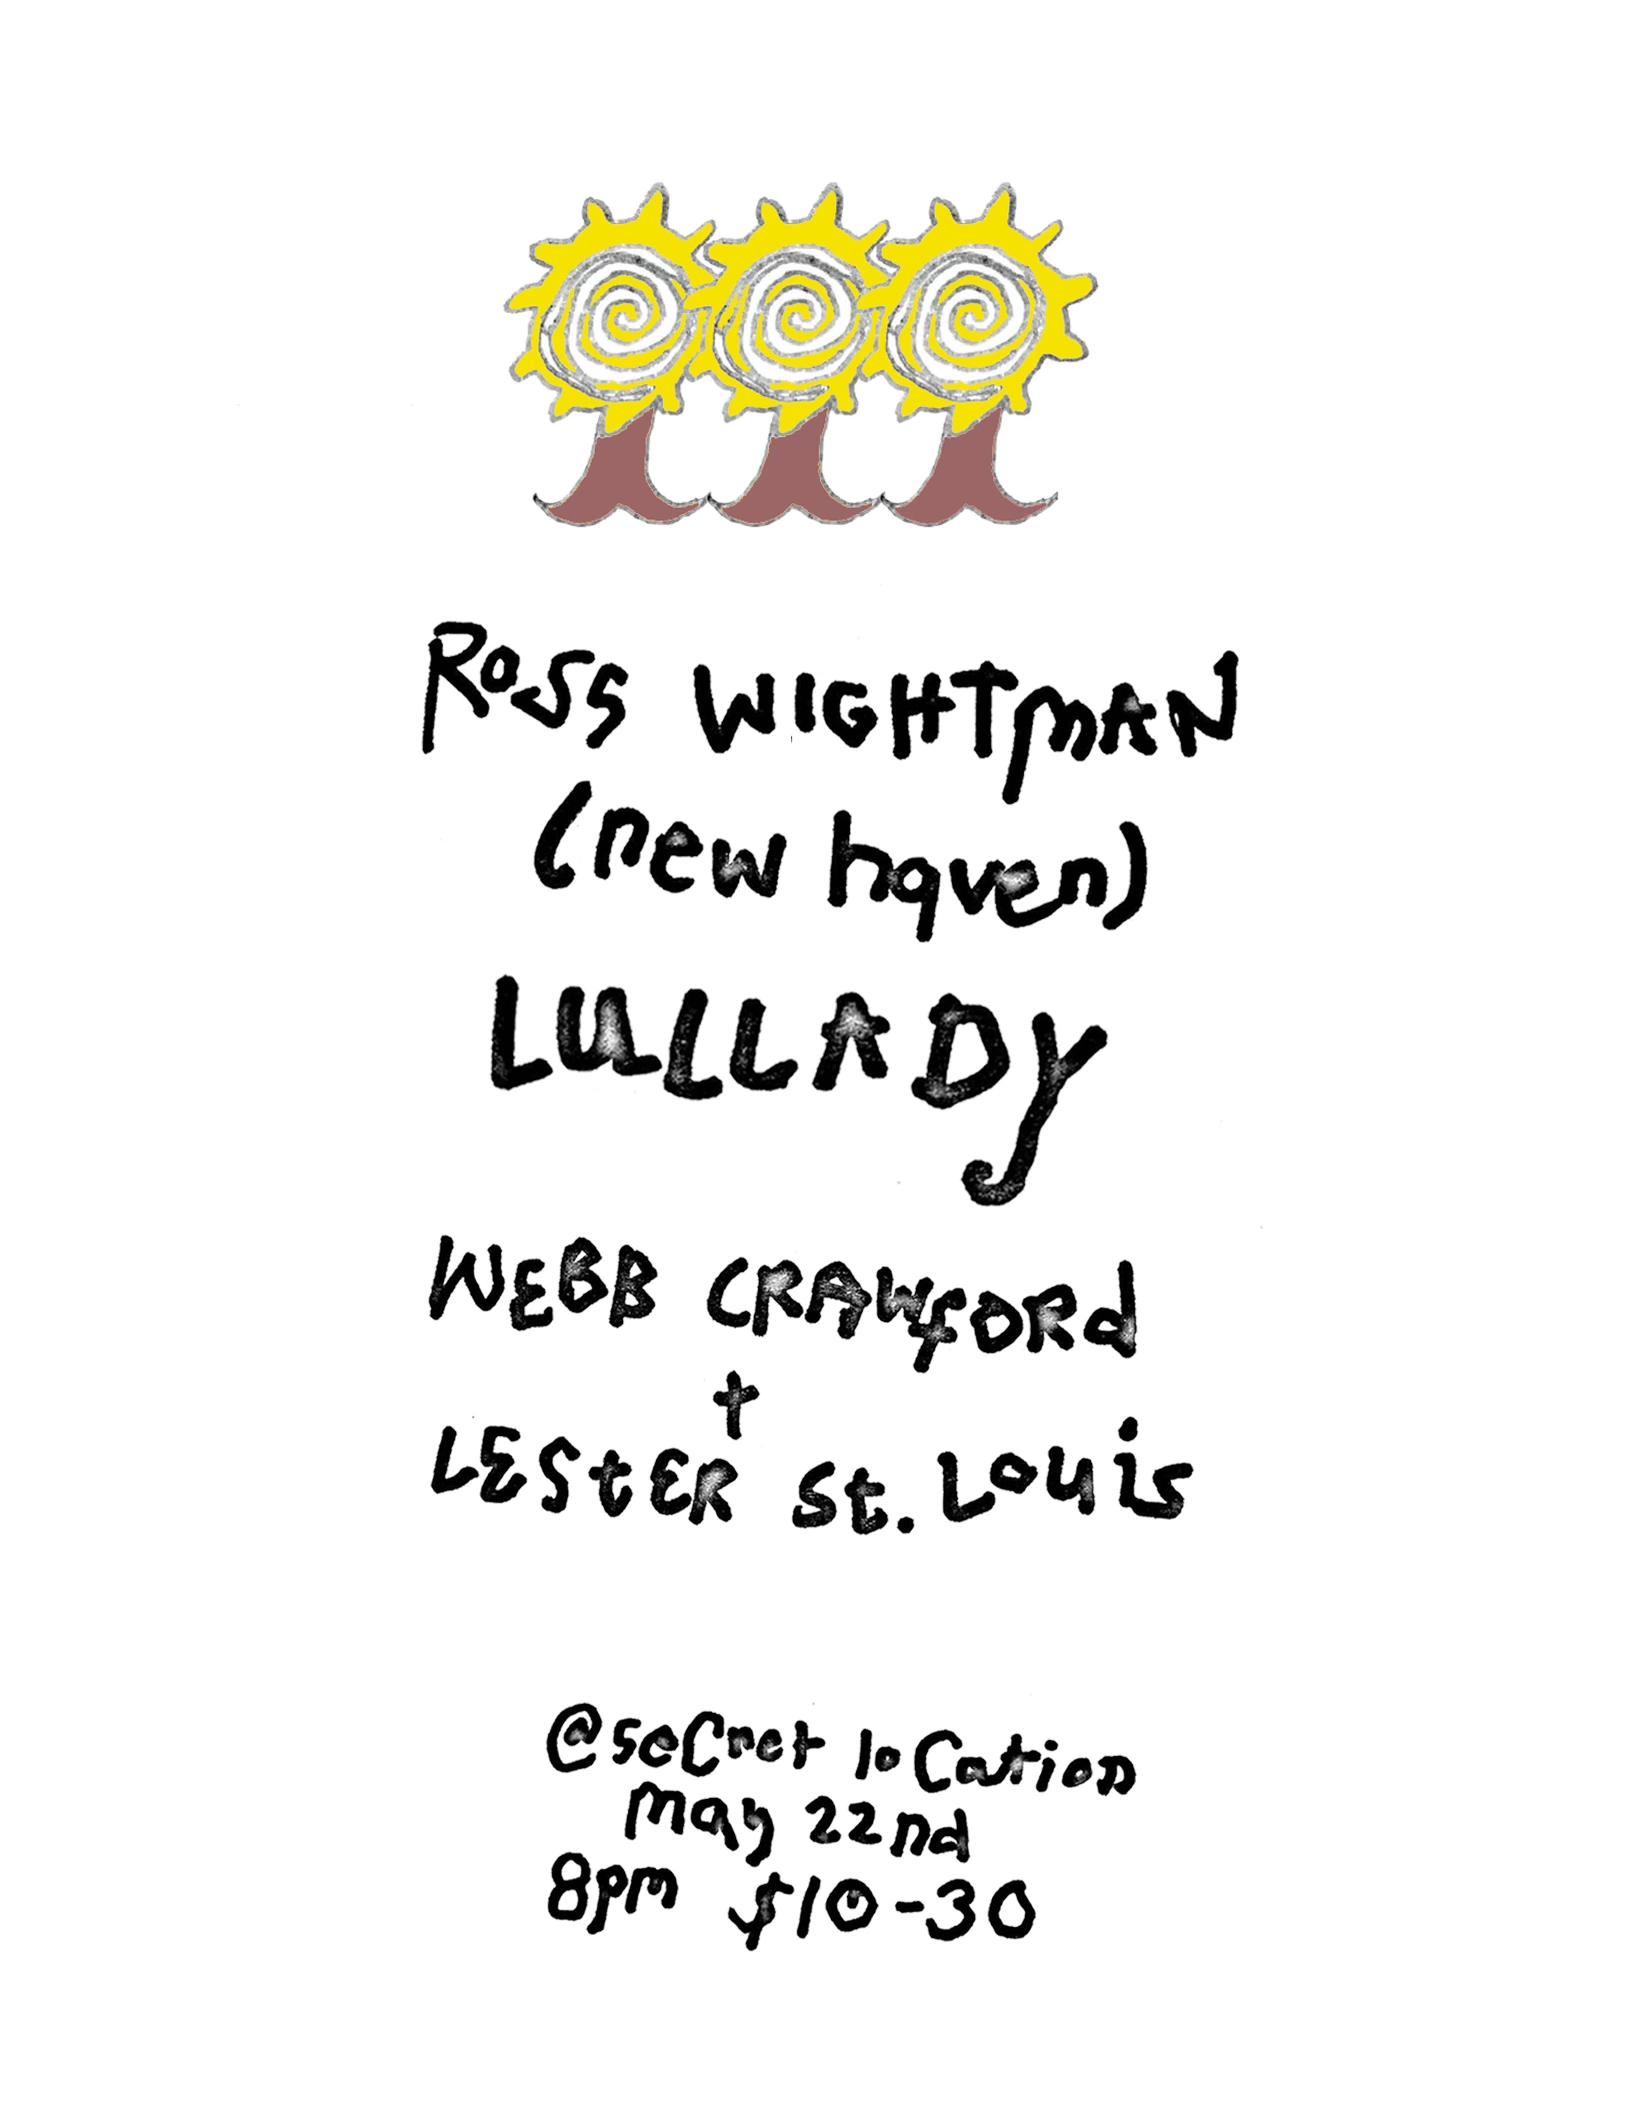 Ross WIGHTMAN
(new haven)
LULLADY
WEBB CRAWFORd
+
LESTER St. Louis
@seCret loCation
may 22nd
8pm $10-30